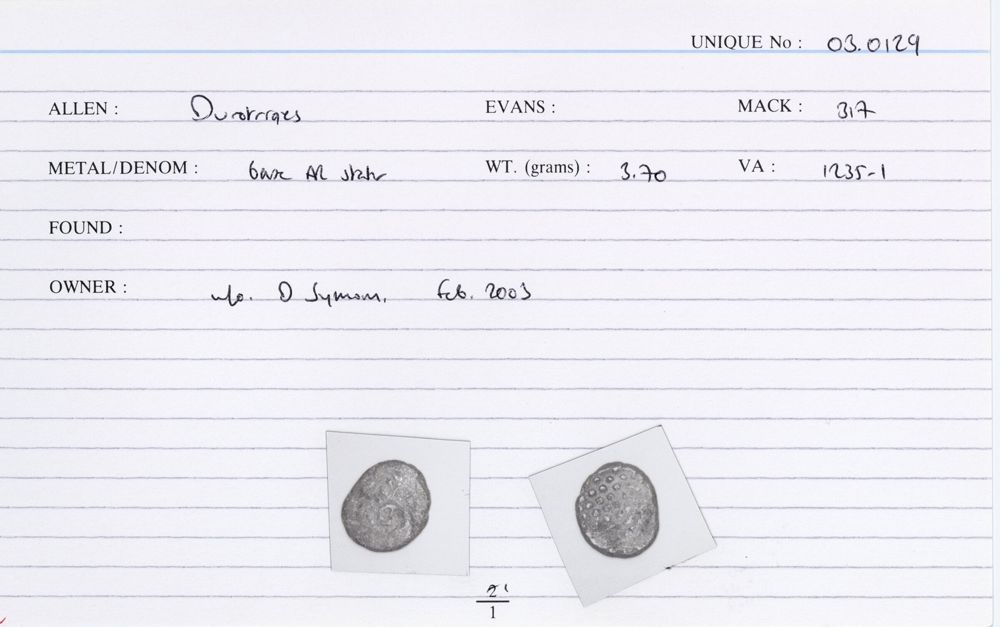 UNIQUE No : 03.0129
ALLEN : Durotriges EVANS : MACK : 317
METAL/DENOM : base AR stater WT. (grams) : 3.70 VA : 1235-1
FOUND :
OWNER : D Symons, Feb. 2003
2
1